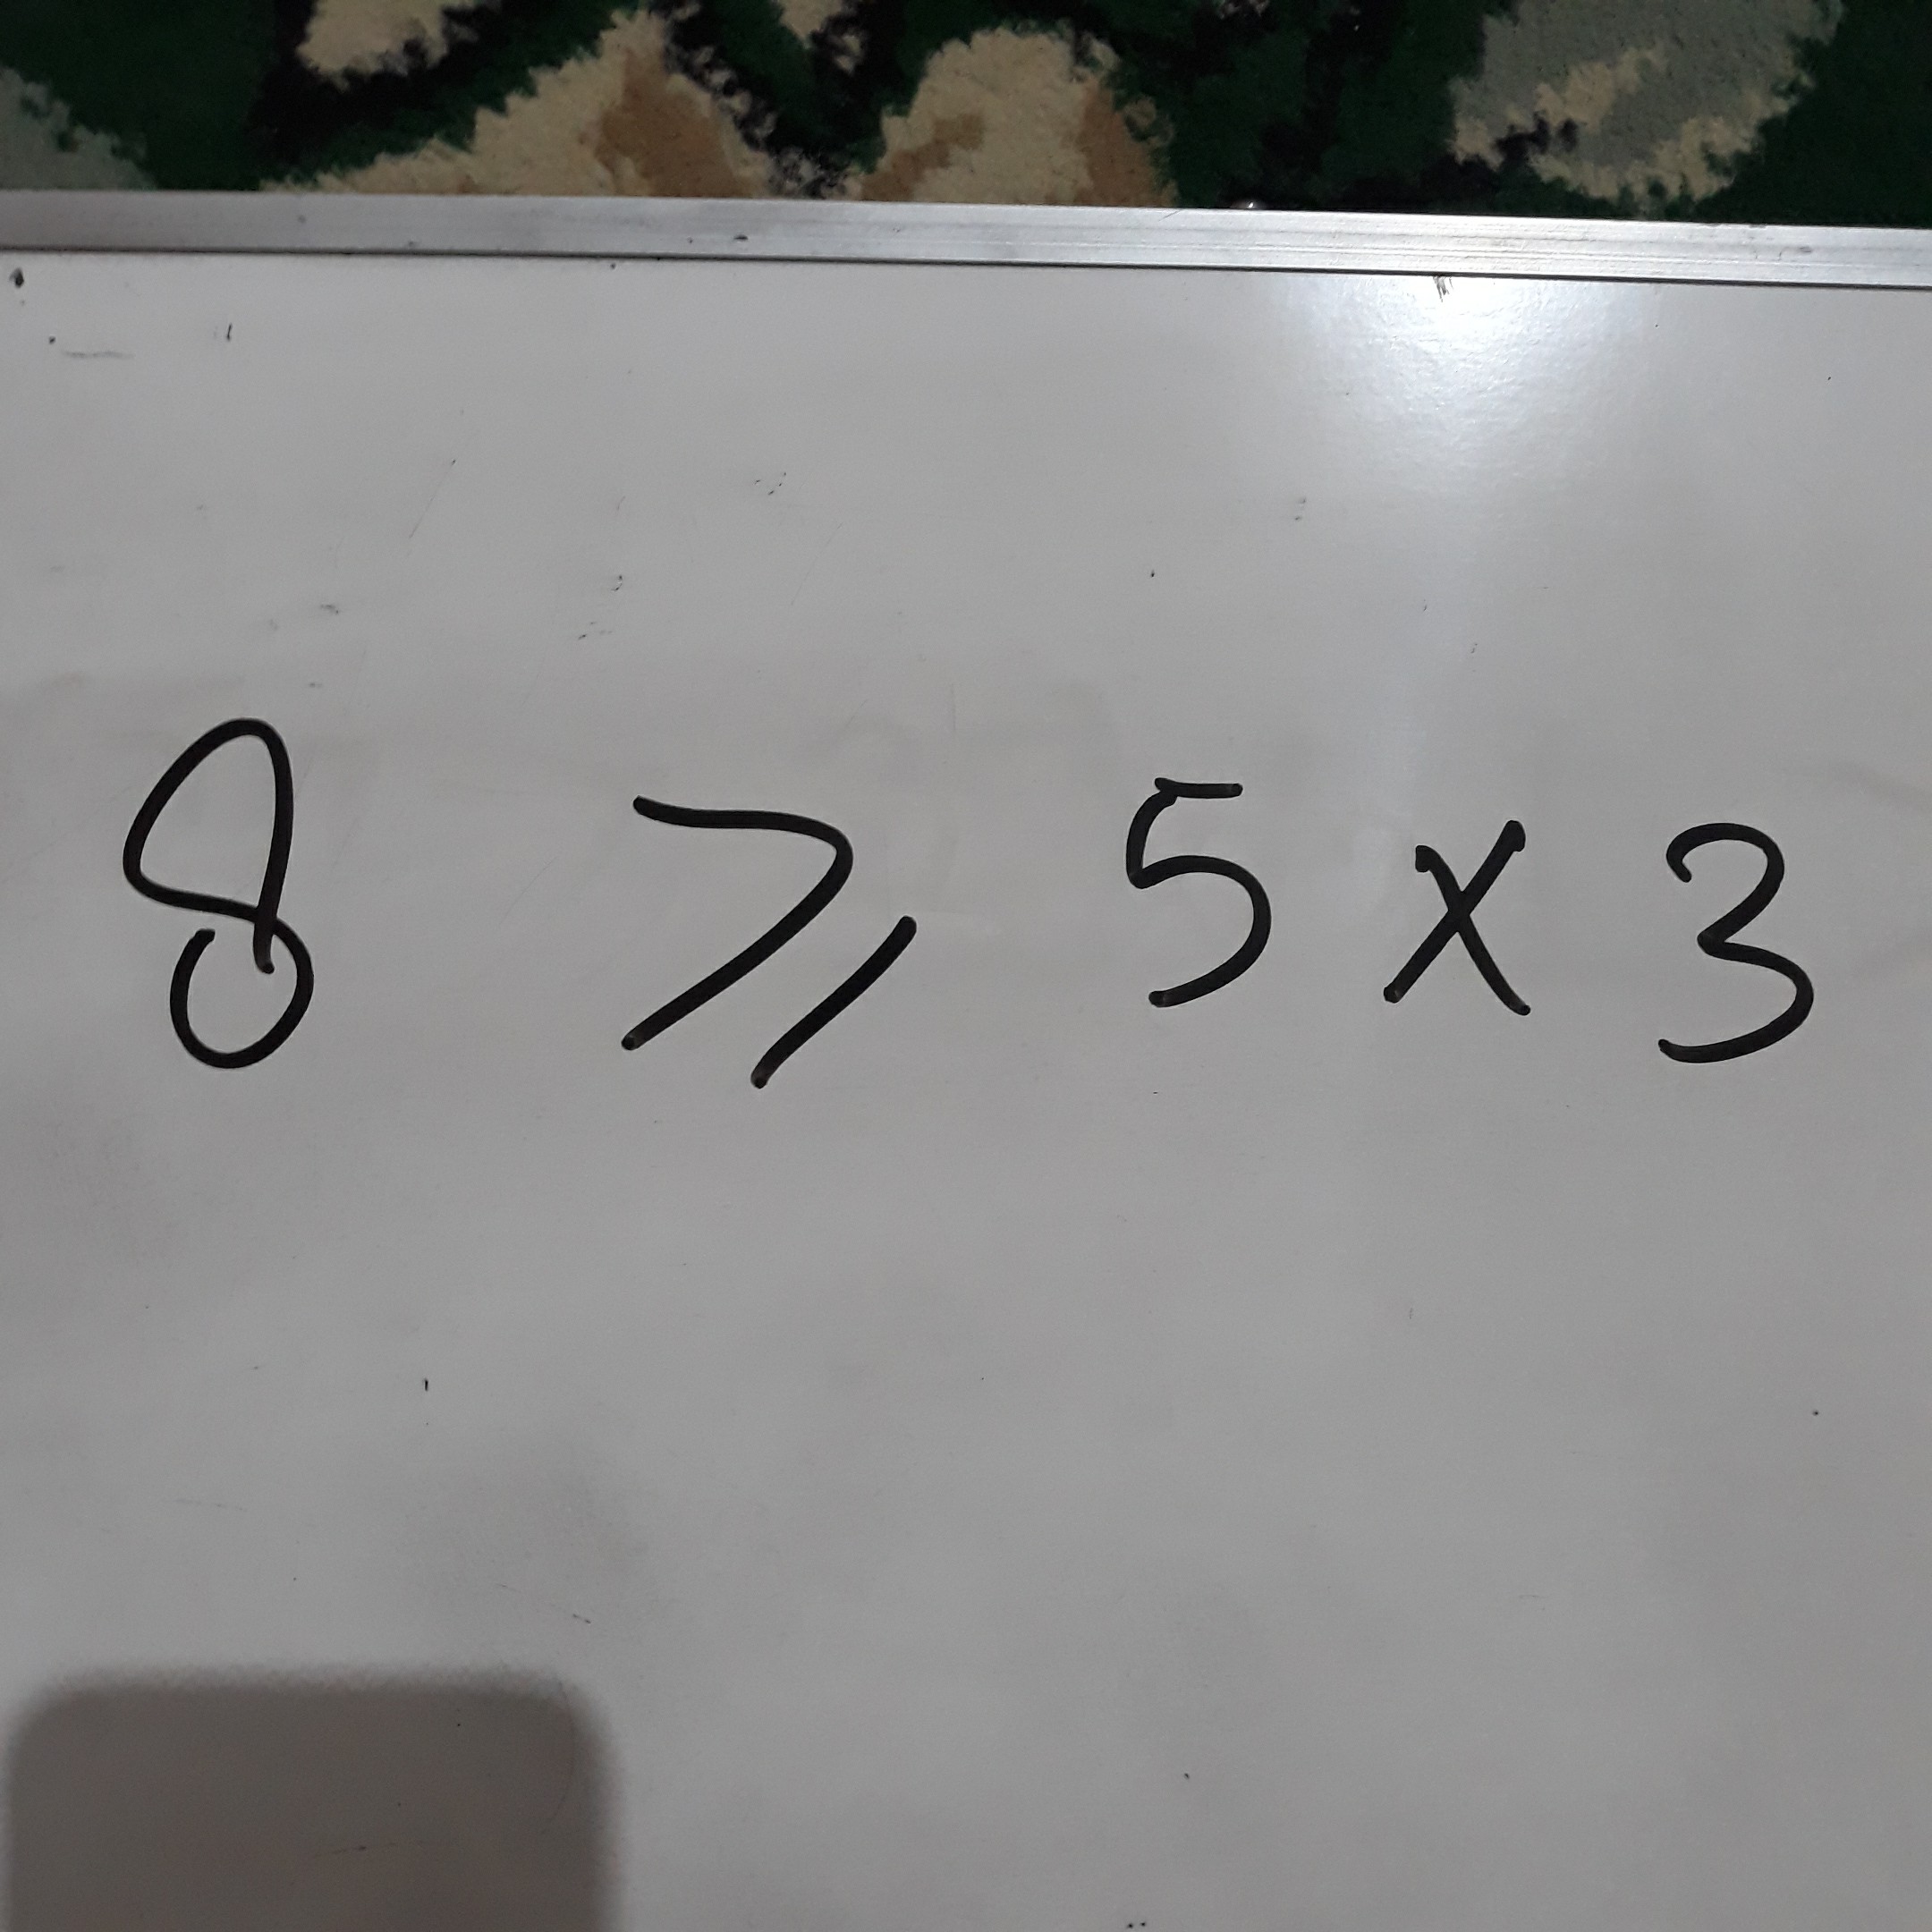 8 ⩾ 5 × 3